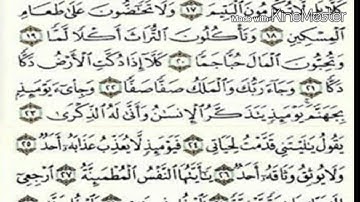 كَلَّا بَل لَّا تُكْرِمُونَ الْيَتِيمَ ١٧ وَلَا تَحَٰضُّونَ عَلَىٰ طَعَامِ
الْمِسْكِينِ ١٨ وَتَأْكُلُونَ التُّرَاثَ أَكْلًا لَّمًّا ١٩
وَتُحِبُّونَ الْمَالَ حُبًّا جَمًّا ٢٠ كَلَّا إِذَا دُكَّتِ الْأَرْضُ دَكًّا
دَكًّا ٢١ وَجَاءَ رَبُّكَ وَالْمَلَكُ صَفًّا صَفًّا ٢٢ وَجِا۟يءَ يَوْمَئِذٍ
بِجَهَنَّمَ يَوْمَئِذٍ يَتَذَكَّرُ الْإِنسَٰنُ وَأَنَّىٰ لَهُ الذِّكْرَىٰ ٢٣
يَقُولُ يَٰلَيْتَنِي قَدَّمْتُ لِحَيَاتِي ٢٤ فَيَوْمَئِذٍ لَّا يُعَذِّبُ عَذَابَهُ أَحَدٌ ٢٥
وَلَا يُوثِقُ وَثَاقَهُ أَحَدٌ ٢٦ يَٰأَيَّتُهَا النَّفْسُ الْمُطْمَئِنَّةُ ٢٧ ارْجِعِي